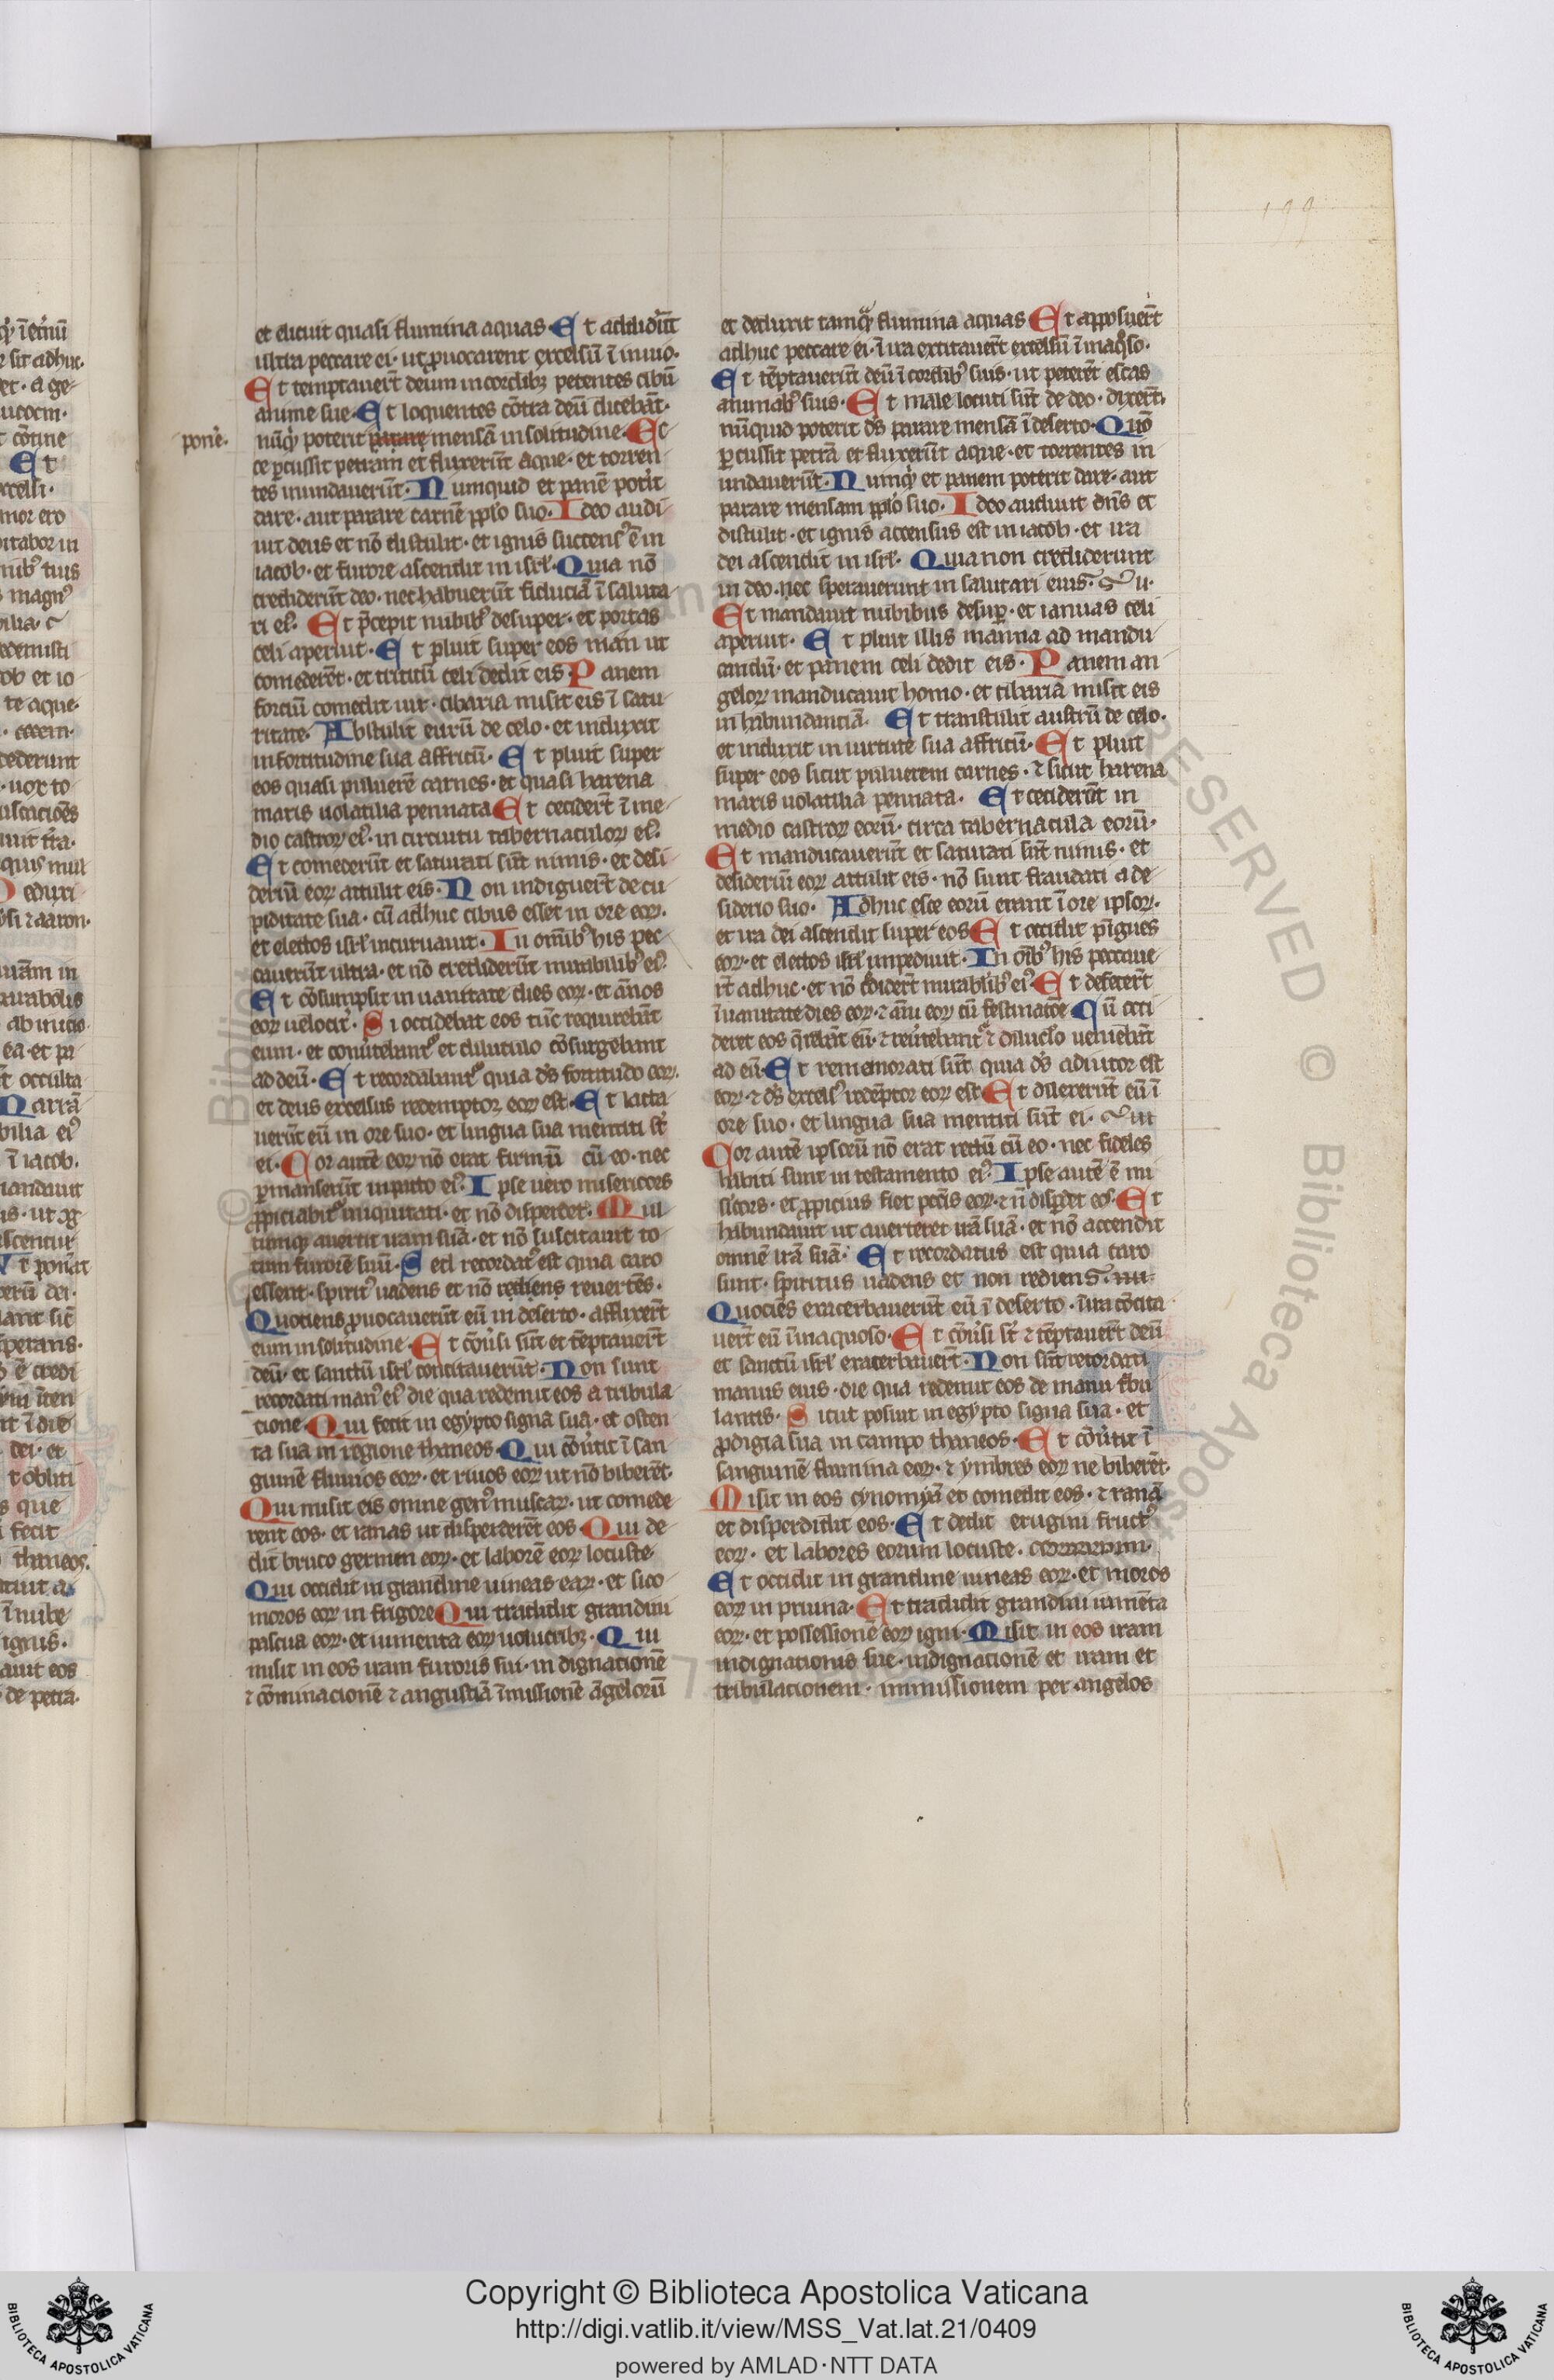 199
et elicuit quasi flumina aquas· Et addiderūt
ultra peccare ei· ut ꝓuocarent excelsū ī inuio·
Et temptauerūt deum in cordibꝫ petentes cibū
anime sue· Et loquentes cōtra deū dicebāt·
pone͛·
nūqͥd poterit parare mensā in solitudine· Ec
ce ꝑcussit petram et fluxerūt aque· et torren
tes inundauerūt· Numquid et panē potͥit
dare· aut parare carnē pplo suo· Ideo audi
uit deus et nō distulit· et ignis succensꝰ ē in
iacob· et furore ascendit in isrl· Quia nō
crediderūt deo· nec habuerūt fiduciā ī saluta
ri eiꝰ· Et p̄cepit nubibꝰ desuper· et portas
celi aperuit· Et pluit super eos man ut
comederēt· et triticū celi dedit eis· Panem
forciū comedit uir· cibaria misit eis ī satu
ritate· Abstulit eurū de celo· et induxit
in fortitudine sua affricū· Et pluit super
eos quasi puluerē carnes· et quasi harena
maris uolatilia pennata· Et ceciderūt ī me
dio castroꝝ eiꝰ· in circuitu tabernaculoꝝ eiꝰ·
Et comederūt et saturati sūt nimis· et desi
deriū eoꝝ attulit eis· Non indiguerūt de cu
piditate sua· cū adhuc cibus esset in ore eoꝝ·
et ira dei ascendit
et electos isrl incuruauit· In omībꝰ his pec
cauerūt ultra· et nō crediderūt mirabilibꝰ eiꝰ·
Et cōsumpsit in uanitate dies eoꝝ· et ānos
eoꝝ uelocitͥ· Si occidebat eos tūc requirebāt
eum· et conūtebantꝰ et diluculo cōsurgebant
ad deū· Et recordabantꝰ quia ds̄ fortitudo eoꝝ·
et deus excelsus redemptor eoꝝ est· Et lacta
uerūt eū in ore suo· et lingua sua mentiti sūt
ei· Cor autē eoꝝ nō erat firmū cū eo· nec
ꝑmanserūt in pacto eiꝰ· Ipse uero misericors
ꝓpiciabitꝰ iniquitati· et nō disperdet· Mul
tumqꝫ auertit iram suā· et nō suscitauit to
tum furorē suū· Sed recordatꝰ est quia caro
essent· spiritꝰ uadens et nō rediens reuertēs·
Quotiens ꝓuocauerūt eū in deserto· afflixerūt
eum in solitudine· Et cōuͥsi sūt et tēptauerūt
deū· et sanctū isrl concitauerūt· Non sunt
recordati manꝰ eiꝰ die qua redemit eos a tribula
cione· Qui fecit in egypto signa sua· et osten
ta sua in regione thaneos· Qui cōuͥtit ī san
guinē fluuios eoꝝ· et riuos eoꝝ ut nō biberēt·
Qui misit eis omne genꝰ muscaꝝ· ut comede
rent eos· et ranas ut disperderēt eos· Qui de
dit bruco germen eoꝝ· et laborē eoꝝ locuste·
Qui occidit in grandine uineas eaꝝ· et sico
moros eoꝝ in frigore· Qui tradidit grandini
pascua eoꝝ· et iumenta eoꝝ uolucribꝫ· Qui
misit in eos iram furoris sui· in dignacionē
⁊ cōminacionē ⁊ angustiā īmissionē āgeloruū
et deduxit tamqͣꝫ flumina aquas· Et apposuerūt
adhuc peccare ei· ī ira excitauerūt excelsū ī inaqͦso·
Et tēptauerūt deū ī cordibꝰ suis· ut peterēt escas
animabꝰ suis· Et male locuti sūt de deo· dixerūt·
nūquid poterit ds̄ parare mensā ī deserto· Qͫō
ꝑcussit petrā et fluxerūt aque· et torrentes in
undauerūt· Numqͥd et panem poterit dare· aut
parare mensam pplo suo· Ideo audiuit dn̄s et
distulit· et ignis accensus est in iacob· et ira
dei ascendit in isrl· Quia non crediderunt
in deo· nec sperauerunt in salutari eius·
Et mandauit nubibus desuꝑ· et ianuas celi
aperuit· Et pluit illis manna ad mandu
candū· et panem celi dedit eis· Panem an
geloꝝ manducauit homo· et cibaria misit eis
in habundanciā· Et transtulit austrū de celo·
et induxit in uirtute sua affricū· Et pluit
super eos sicut puluerem carnes· ⁊ sicut harena
maris uolatilia pennata· Et ceciderūt in
medio castroꝝ eorū· circa tabernacula eorū·
Et manducauerūt et saturati sūt nimis· et
desideriū eoꝝ attulit eis· nō sunt fraudati a de
siderio suo· Adhuc esce eorū erant ī ore ipsoꝝ·
et ira dei ascendit super eos· Et occidit pīgues
eoꝝ· et electos isrl impediuit· In oībꝰ his peccaue
rūt adhuc· et nō c͛diderūt mirabilibꝰ eiꝰ· Et defecerūt
ī uanitate dies eoꝝ· ⁊ anni eoꝝ cū festinacōe· Cū occi
deret eos q̄rebāt eū· ⁊ reuͥtebantꝰ ⁊ diluclo ueniebāt
ad eū· Et rememorati sūt quia ds̄ adiutor est
eoꝝ· ⁊ ds̄ excelsꝰ redēptor eoꝝ est· Et dilexerūt eū ī
ore suo· et lingua sua mentiti sūt ei·
Cor autē ipsorū nō erat rectū cū eo· nec fideles
habiti sunt in testamento eiꝰ· Ipse autē ē mi
sͥicors· et ꝓpicius fiet pcc̄is eoꝝ· ⁊ nō disꝑdet eos· Et
habundauit ut auerteret irā suā· et nō accendit
omnē irā suā· Et recordatus est quia caro
sunt· spiritus uadens et non rediens·
Quociēs exacerbauerūt eū ī deserto· ī ira cōcita
uerūt eū ī inaquoso· Et cōuͥsi sūt ⁊ tēptauerūt deū
et sanctū isrl exacerbauerūt· Non sūt recordati
manus eius· die qua redemit eos de manu tͥbu
lantis· Sicut posuit in egypto signa sua· et
ꝓdigia sua in campo thaneos· Et cōuͥtit ī
sanguinē flumina eoꝝ· ⁊ ymbres eoꝝ ne biberēt·
Misit in eos cynomyā et comedit eos· ⁊ ranā
et disperdidit eos· Et dedit erugini fructꝰ
eoꝝ· et labores eorum locuste·
Et occidit in grandine uineas eoꝝ· et moros
eoꝝ in pruina· Et tradidit grandini iumēta
eoꝝ· et possessionē eoꝝ igni· Misit in eos iram
indignationis sue· indignacionē et iram et
tribulacionem· immissionem per angelos
Copyright © Biblioteca Apostolica Vaticana
http://digi.vatlib.it/view/MSS_Vat.lat.21/0409
powered by AMLAD·NTT DATA
BIBLIOTECA APOSTOLICA VATICANA
BIBLIOTECA APOSTOLICA VATICANA